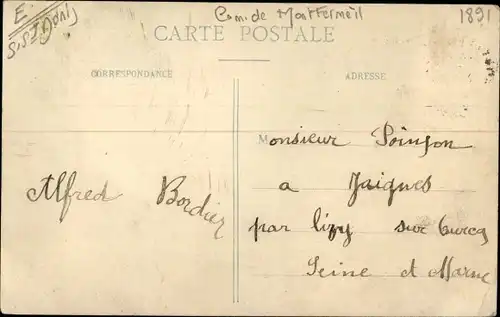 E
S.StDenis
Com. de Montfermeil
1891
CARTE POSTALE
CORRESPONDANCE
ADRESSE
Monsieur Poinson
a Jaignes
par lizy sur Ourcq
Seine et Marne
Alfred Bordier